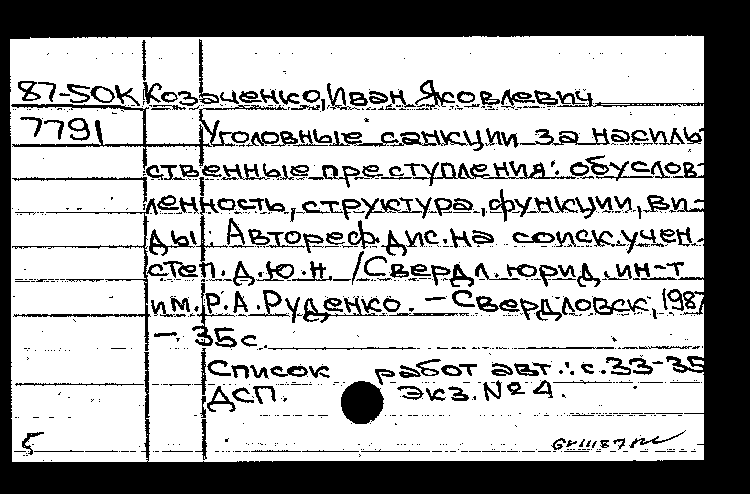 87-50К Козаченко, Иван Яковлевич
7791 Уголовные санкции за насиль
ственные преступления: обуслов-
ленность, структура, функции, ви-
ды: Автореф. дис. на соиск. учен.
степ. д.ю.н. / Свердл. юрид. ин-т
им. Р.А. Руденко. – Свердловск, 1987
– 35 с.
Список работ авт.: с. 33-35
ДСП. Экз. № 4.
5